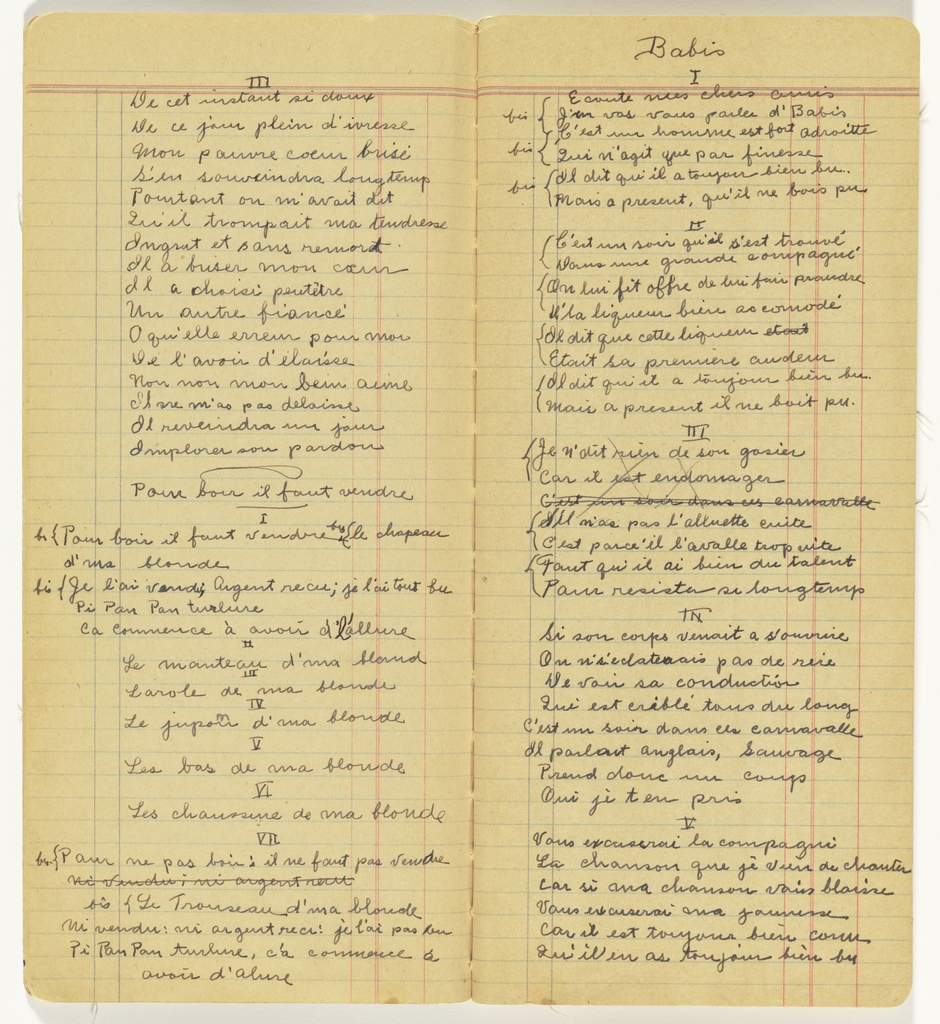 III
De cet instant si doux
De ce jour plein d'ivresse
Mon pauvre coeur brisé
S'en souveindra longtemp
Pourtant on m'avait dit
Qu'il trompait ma tendresse
Ingrat et sans remord.
Il a briser mon coeur
Il a choisi peutêtre
Un autre fiancé
O qu'elle erreur pour moi
De l'avoir d'élaisse
Non non mon bein aimé
Il ne m'as pas delaisse
Il reveindra un jour
Implorer son pardon
Pour boir il faut vendre
I
bis { Pour boir il faut vendre bis { le chapeau
d'ma blonde
bis { Je l'ai vendu; Argent recu; je l'ai tout bu
Pi Pan Pan turlure
Ca commence à avoir d'l'allure
II
Le manteau d'ma blond
III
La role de ma blonde
IV
Le jupon d'ma blonde
V
Les bas de ma blonde
VI
Les chaussure de ma blonde
VII
bis { Pour ne pas boir: il ne faut pas vendre
ni vendu; ni argent recu
bis { Le Trouseau d'ma blonde
Ni vendu: ni argent recu: je l'ai pas bu
Pi Pan Pan turlure, c'a commence à
avoir d'alure
Babis
I
Ecoute mes chers amis
bis { J'm vas vous parler d'Babis
{ C'est un homme est fort adroitte
bis { Qui n'agit que par finesse
bis { Il dit qu'il a toujour bien bu..
Mais a present, qu'il ne bois pu
II
{ C'est un soir qu'il s'est trouvé
Dans une grande compagné
{ On lui fit offre de lui fair prandre
D'la liqueur bien accomodé
{ Il dit que cette liqueur était
Etait sa premiere audeur
{ Il dit qu'il a toujour bien bu..
Mais a present il ne boit pu.
III
{ Je n'dit rien de son gosier
Car il est endomager
C'est un soir dans ces carnavalle
{ S'il n'as pas l'alluette cuite
C'est parce'il l'avalle trop vite
{ Faut qu'il ai bien du talent
Pour resister si longtemp
IV
Si son corps venait a s'ouvrire
On n's'eclaterais pas de reire
De voir sa conduction
Qui est criblé tous du long
C'est un soir dans ces carnavalle
Il parlait anglais, Sauvage
Prend donc un coup
Oui je t'en pris
V
Vous excuserai la compagni
La chanson que je vien de chanter
Car si ma chanson vous blaisse
Vous excuserai ma jeunesse
Car il est toujour bien conu
Qu'il en as toujour bien bu